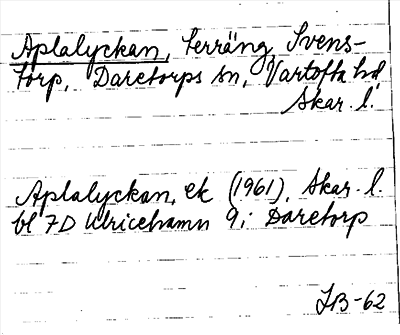 Aplalyckan, terräng, Svens-
torp, Daretorps sn, Vartofta hd
Skar. l.
Aplalyckan, ek (1961), Skar. l.
bl 7D Ulricehamn 9i Daretorp
IB-62